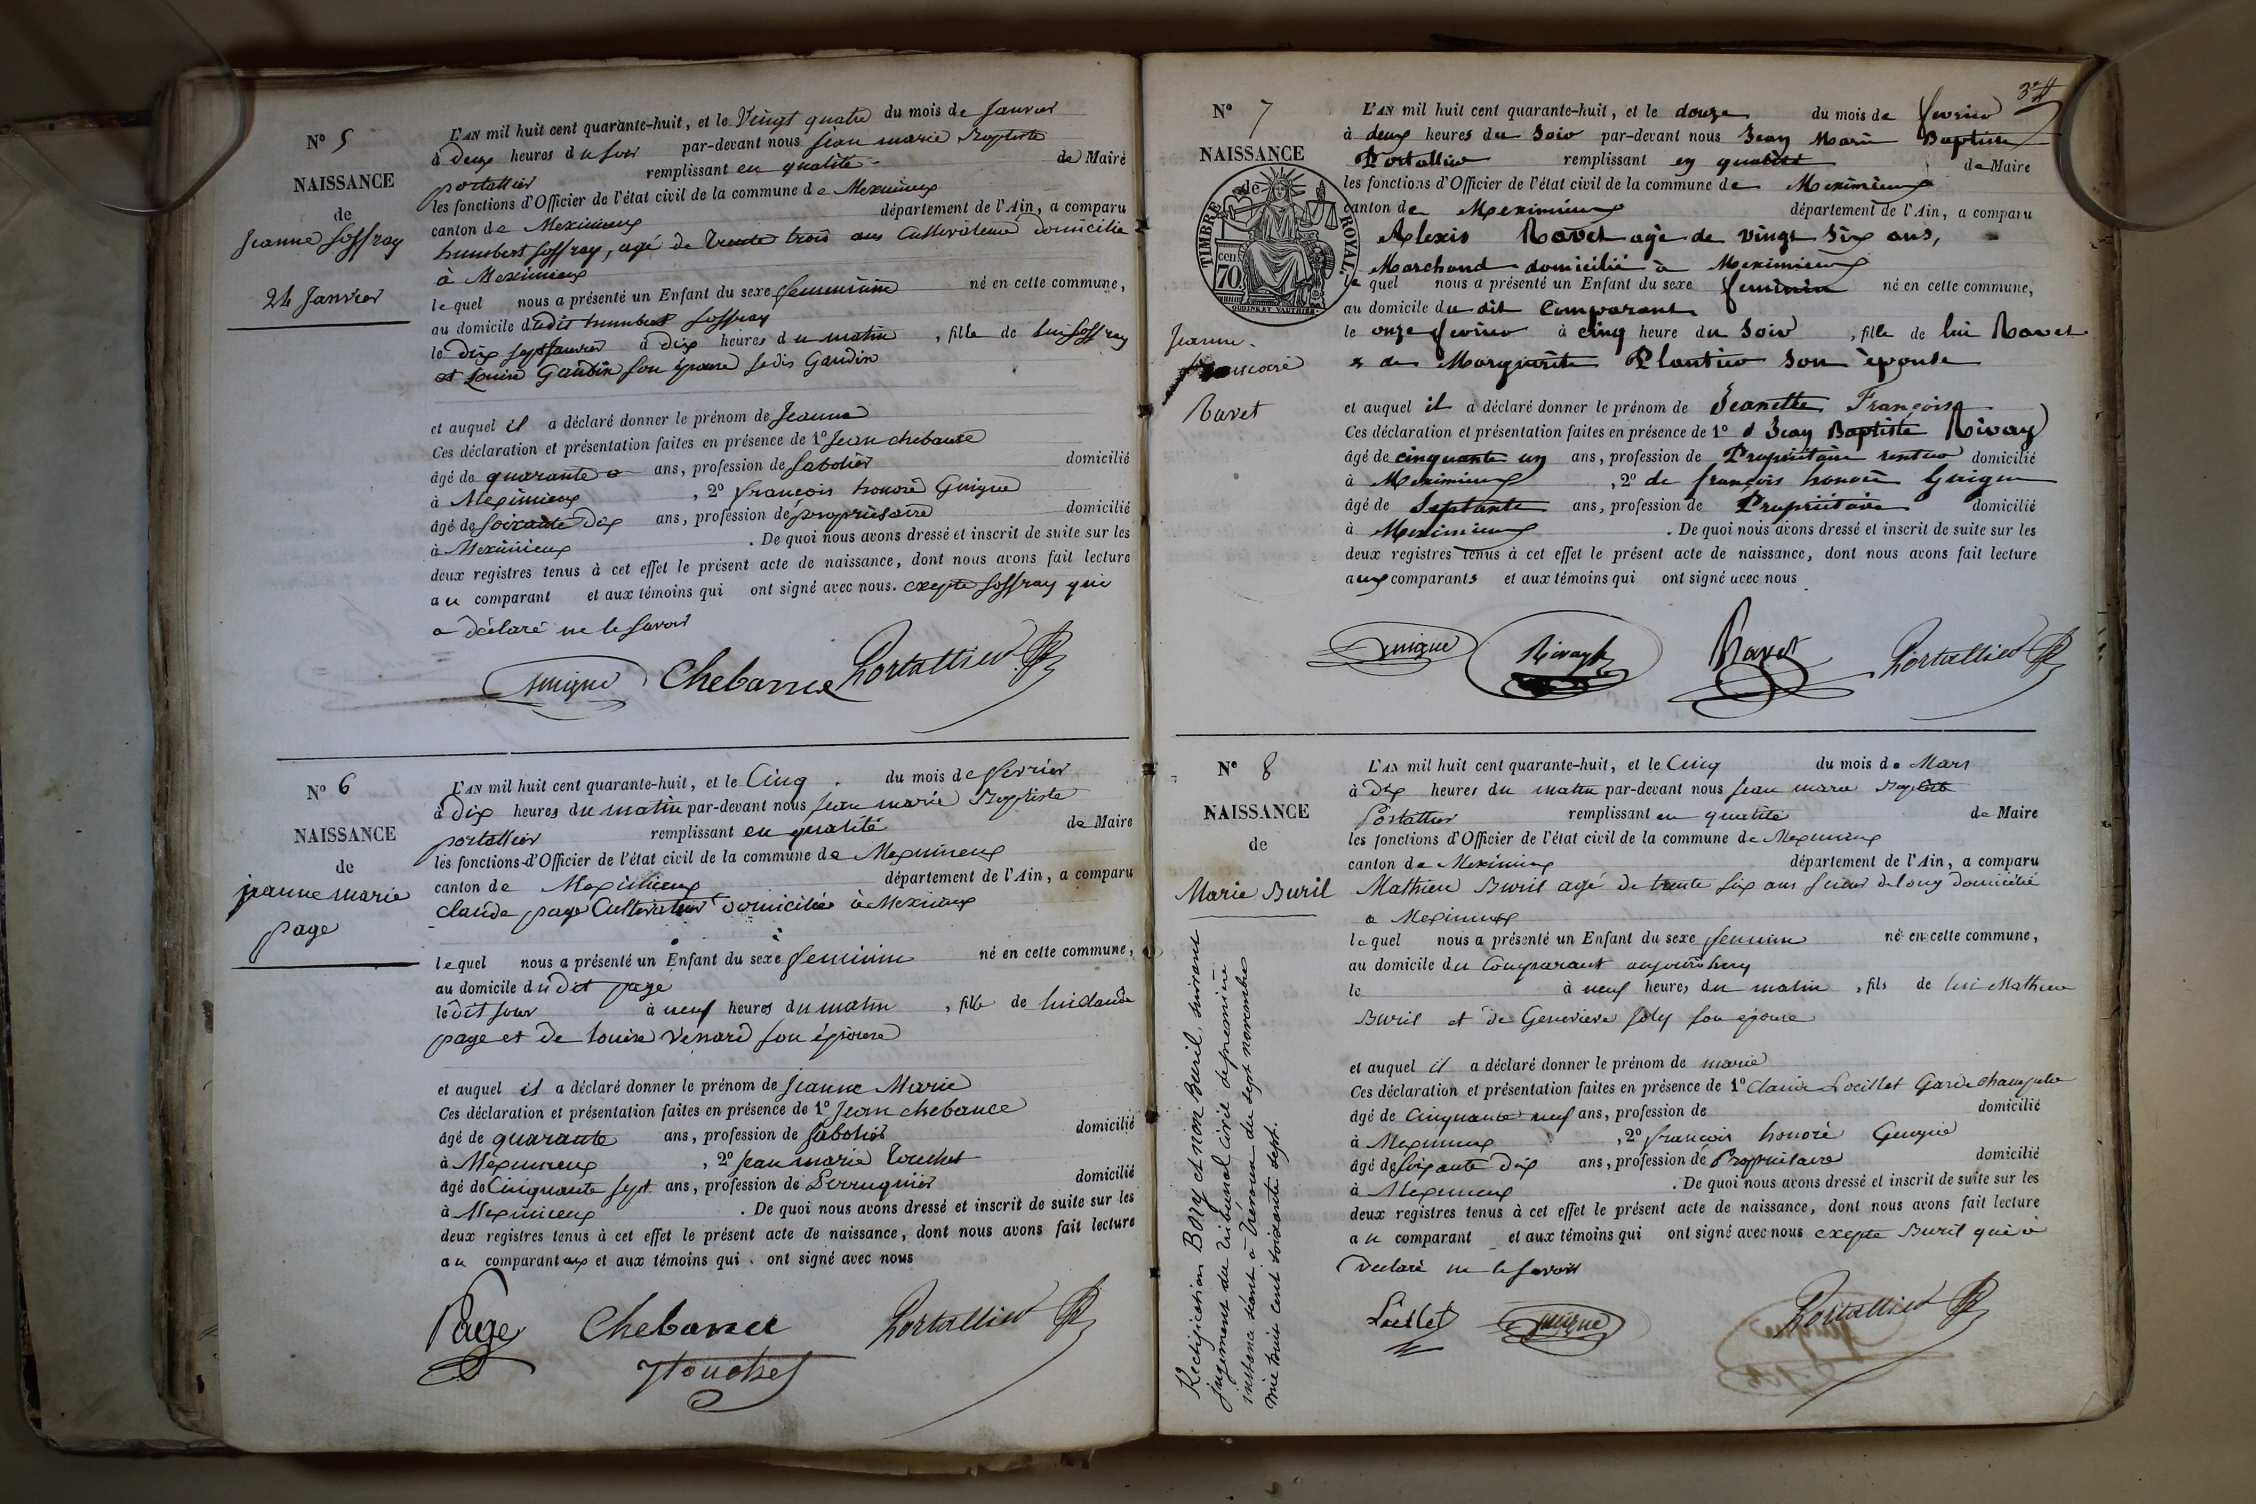 N° 5
NAISSANCE
de
Jeanne Soffray
24 Janvier
L'AN mil huit cent quarante-huit, et le Vingt quatre du mois de Janvier
à Deux heures du soir par-devant nous jean marie Baptiste
portallier remplissant en qualité de Maire
les fonctions d'Officier de l'état civil de la commune de Meximieux
canton de Meximieux département de l'Ain, a comparu
humbert soffray, agé de trente trois ans Cultivateur domicilié
à Meximieux
lequel nous a présenté un Enfant du sexe feminin né en cette commune,
au domicile dudit humbert soffray
le Dix sept Janvier à Dix heures du matin, fille de lui soffray
et Louise Gandin son épouse
et auquel il a déclaré donner le prénom de Jeanne
Ces déclaration et présentation faites en présence de 1° Jean chebance
âgé de quarante ans, profession de sabotier domicilié
à Meximieux, 2° françois honoré Guigue
âgé de soixante Dix ans, profession de propriétaire domicilié
à Meximieux. De quoi nous avons dressé et inscrit de suite sur les
deux registres tenus à cet effet le présent acte de naissance, dont nous avons fait lecture
au comparant et aux témoins qui ont signé avec nous. exepte soffray qui
a déclaré ne le savoir
Guigue Chebance Portallier
N° 6
NAISSANCE
de
jeanne marie
page
L'AN mil huit cent quarante-huit, et le Cinq du mois de fevrier
à Dix heures du matin par-devant nous jean marie Baptiste
portallier remplissant en qualité de Maire
les fonctions d'Officier de l'état civil de la commune de Meximieux
canton de Meximieux département de l'Ain, a comparu
claude page Cultivateur domicilié à Meximieux
lequel nous a présenté un Enfant du sexe feminin né en cette commune,
au domicile du dit page
le dit jour à neuf heures du matin, fille de lui claude
page et de Louise Venard son épouse
et auquel il a déclaré donner le prénom de Jeanne Marie
Ces déclaration et présentation faites en présence de 1° Jean chebance
âgé de quarante ans, profession de sabotier domicilié
à Meximieux, 2° jean marie Touchet
âgé de Cinquante sept ans, profession de Perruquier domicilié
à Meximieux. De quoi nous avons dressé et inscrit de suite sur les
deux registres tenus à cet effet le présent acte de naissance, dont nous avons fait lecture
au comparant et aux témoins qui ont signé avec nous
Page Chebance Portallier
Touchet
3e
N° 7
NAISSANCE
de
TIMBRE ROYAL.
70 cen
Jeanne
Ravet
L'AN mil huit cent quarante-huit, et le douze du mois de fevrier
à deux heures du soir par-devant nous Jean Marie Baptiste
Portallier remplissant en qualité de Maire
les fonctions d'Officier de l'état civil de la commune de Meximieux
canton de Meximieux département de l'Ain, a comparu
Alexis Ravet agé de vingt six ans,
Marchand domicilié à Meximieux
le quel nous a présenté un Enfant du sexe feminin né en cette commune,
au domicile du dit Comparant
le onze fevrier à cinq heure du soir, fille de lui Ravet
& de Marguerite Plantier son épouse
et auquel il a déclaré donner le prénom de Jeanette Françoise
Ces déclaration et présentation faites en présence de 1° Jean Baptiste Rivay
âgé de cinquante un ans, profession de Propriétaire rentier domicilié
à Meximieux, 2° de françois honoré Guigue
âgé de Septante ans, profession de Propriétaire domicilié
à Meximieux. De quoi nous avons dressé et inscrit de suite sur les
deux registres tenus à cet effet le présent acte de naissance, dont nous avons fait lecture
aux comparants et aux témoins qui ont signé avec nous
Guigue Rivay Ravet Portallier
N° 8
NAISSANCE
de
Marie Buril
Rectification Bory et non Buril, suivant
jugement du tribunal civil de première
instance séant à Trévoux du sept novembre
mil huit cent soixante sept.
L'AN mil huit cent quarante-huit, et le Cinq du mois de Mars
à Dix heures du matin par-devant nous jean marie Baptiste
Portallier remplissant en qualité de Maire
les fonctions d'Officier de l'état civil de la commune de Meximieux
canton de Meximieux département de l'Ain, a comparu
Mathieu Buril agé de trente six ans sieur de long domicilié
a Meximieux
lequel nous a présenté un Enfant du sexe feminin né en cette commune,
au domicile du Comparant aujourdhuy
le à neuf heures du matin, fils de lui Mathieu
Buril et de Genevieve Joly son epouse
et auquel il a déclaré donner le prénom de marie
Ces déclaration et présentation faites en présence de 1° Claude Loeillet Garde champetre
âgé de Cinquante neuf ans, profession de domicilié
à Meximieux, 2° françois honoré Guigue
âgé de soixante Dix ans, profession de Propriétaire domicilié
à Meximieux. De quoi nous avons dressé et inscrit de suite sur les
deux registres tenus à cet effet le présent acte de naissance, dont nous avons fait lecture
au comparant et aux témoins qui ont signé avec nous exepte Buril qui a
declaré ne le savoir
Loeillet Guigue Portallier